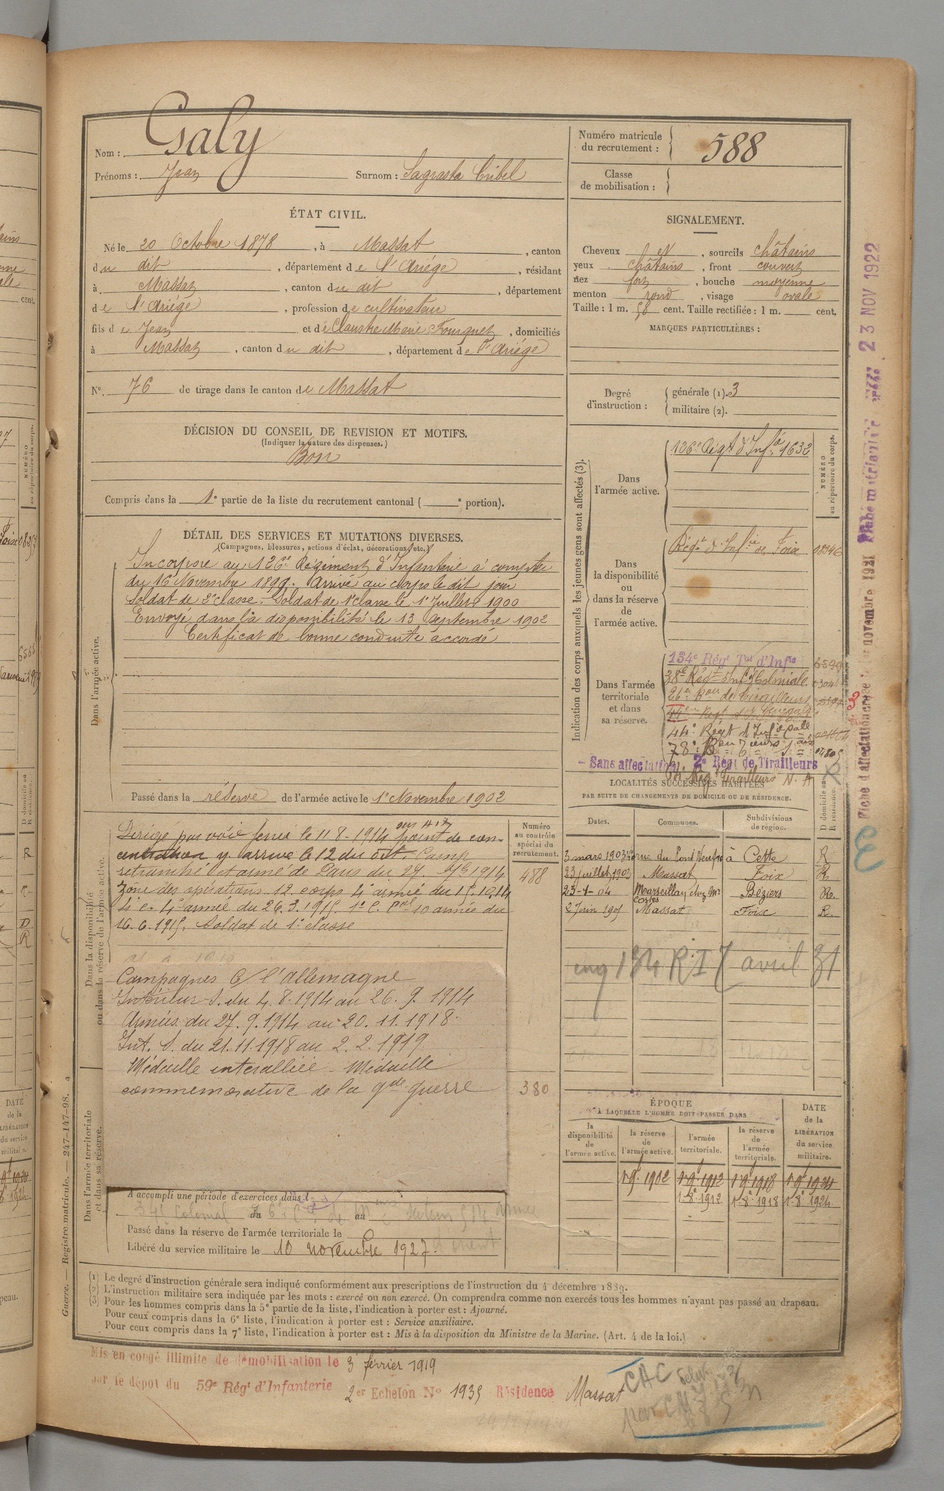 Nom : Galy
Prénoms : Jean Surnom :
Numéro matricule du recrutement : 588
Classe de mobilisation :
ÉTAT CIVIL.
Né le 20 Octobre 1878, à Massat, canton
du dit, département de l'Ariège, résidant
à Massat, canton du dit, département
de l'Ariège, profession de cultivateur
fils de Jean et de Marie Fouquet, domiciliés
à Massat, canton du dit, département de l'Ariège
N°. 76 de tirage dans le canton de Massat
SIGNALEMENT.
Cheveux et, sourcils châtains
yeux châtains, front couvert
nez fort, bouche moyenne
menton rond, visage ovale
Taille : 1 m. 58 cent. Taille rectifiée : 1 m. cent.
MARQUES PARTICULIÈRES :
Degré d'instruction : générale (1). 3
militaire (2).
DÉCISION DU CONSEIL DE REVISION ET MOTIFS.
(Indiquer la nature des dispenses.)
Bon
Compris dans la 1e partie de la liste du recrutement cantonal ( e portion).
DÉTAIL DES SERVICES ET MUTATIONS DIVERSES.
(Campagnes, blessures, actions d'éclat, décorations, etc.)
Dans l'armée active.
Incorporé au 126e Régiment d'Infanterie à compter
du 16 Novembre 1899. Arrivé au corps le dit jour
Soldat de 2e classe. Soldat de 1e classe le 1er Juillet 1900
Envoyé dans la disponibilité le 13 Septembre 1902
Certificat de bonne conduite accordé
Passé dans la réserve de l'armée active le 1er Novembre 1902
Indication des corps auxquels les jeunes gens sont affectés (3).
NUMÉRO au répertoire du corps.
Dans l'armée active. 126e Régt d'Inf. 1632
Dans la disponibilité ou dans la réserve de l'armée active. Régt d'Infrie de Foix
Dans l'armée territoriale et dans sa réserve.
134e Rég Tal d'Infie
38e Régt d'Inf Coloniale
26e Bon de Tirailleurs
44e Régt d'Infie Cale
Sans affectation 2e Régt de Tirailleurs
Régt Tirailleurs N. A.
LOCALITÉS SUCCESSIVES HABITÉES
PAR SUITE DE CHANGEMENTS DE DOMICILE OU DE RÉSIDENCE.
Dates. Communes. Subdivisions de région. D domicile ou R résidence.
3 mars 1903 rue du Pont Neuf à Cette R
23 juillet 1903 Massat Foix R
23-1-04 Marseillan, chez Mr Béziers R
2 Juin 1905 Massat Foix R
134 R I 7 avril 31
Numéro au contrôle spécial du recrutement.
488
380
Dans la disponibilité ou dans la réserve de l'armée active.
Dirigé par voie ferrée le 11.8.1914 sur point de con-
centration y arrive le 12 du dit. Camp
retranché et armée de Paris du 27. 1914
Zone des opérations 12 corps 4e armée du 17.10.14
12 c. 4e armée du 26.3.1915. 1e C. Cal 10 armée du
16.6.1915. Soldat de 1e classe
Campagnes C/ l'Allemagne
Intérieur S. du 4.8.1914 au 26.9.1914
Armées du 27.9.1914 au 20.11.1918.
Int. S. du 21.11.1918 au 2.2.1919
Médaille interalliée – Médaille
commémorative de la gde guerre
Dans l'armée territoriale et dans sa réserve.
A accompli une période d'exercices dans
du au
Passé dans la réserve de l'armée territoriale le
Libéré du service militaire le 10 novembre 1927.
ÉPOQUE
À LAQUELLE L'HOMME DOIT PASSER DANS
la disponibilité de l'armée active. la réserve de l'armée active. l'armée territoriale. la réserve de l'armée territoriale. DATE de la LIBÉRATION du service militaire.
1 9 1902 1 9 1912 1 9 1918 1 9 1924
1 8 1912 1 8 1918 1 8 1924
(1) Le degré d'instruction générale sera indiqué conformément aux prescriptions de l'instruction du 4 décembre 1889.
(2) L'instruction militaire sera indiquée par les mots : exercé ou non exercé. On comprendra comme non exercés tous les hommes n'ayant pas passé au drapeau.
(3) Pour les hommes compris dans la 5e partie de la liste, l'indication à porter est : Ajourné.
Pour ceux compris dans la 6e liste, l'indication à porter est : Service auxiliaire.
Pour ceux compris dans la 7e liste, l'indication à porter est : Mis à la disposition du Ministre de la Marine. (Art. 4 de la loi.)
Mis en congé illimité de démobilisation le 3 février 1919
par le dépôt du 59e Régt d'Infanterie 2er Echelon No 1935 Résidence Massat
CAC
Guerre. — Registre matricule. — 247-147-98.
23 NOV 1922
Fiche d'affectation novembre 1921